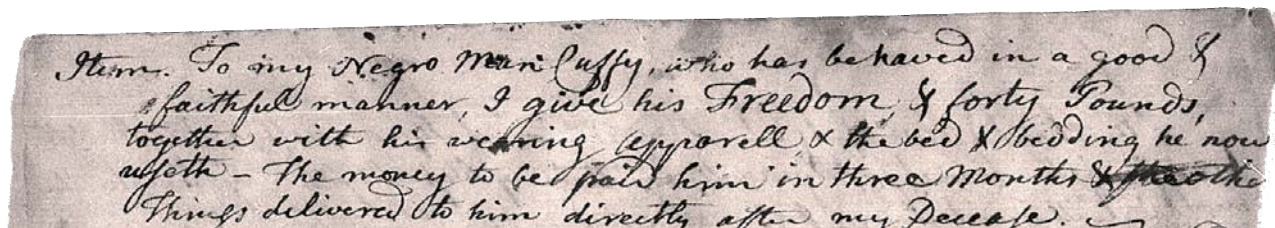 Item. To my Negro Man Cuffy, who has behaved in a good &
faithful manner, I give his Freedom, & forty Pounds,
together with his wearing apparell & the bed & bedding he now
useth – The money to be paid him in three Months & the othe
Things delivered to him directly after my Decease.